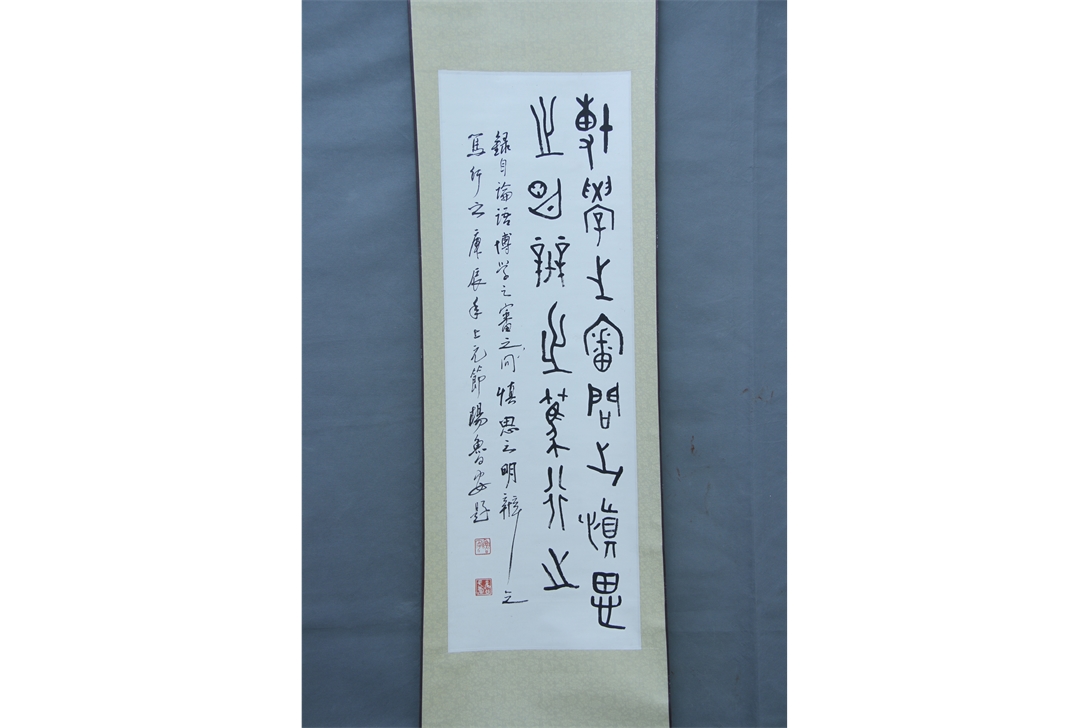 博學之審問之慎思
之明辨之篤行之
錄自論語博学之審之问慎思之明辨之
篤行之庚辰年上元節楊魯安題